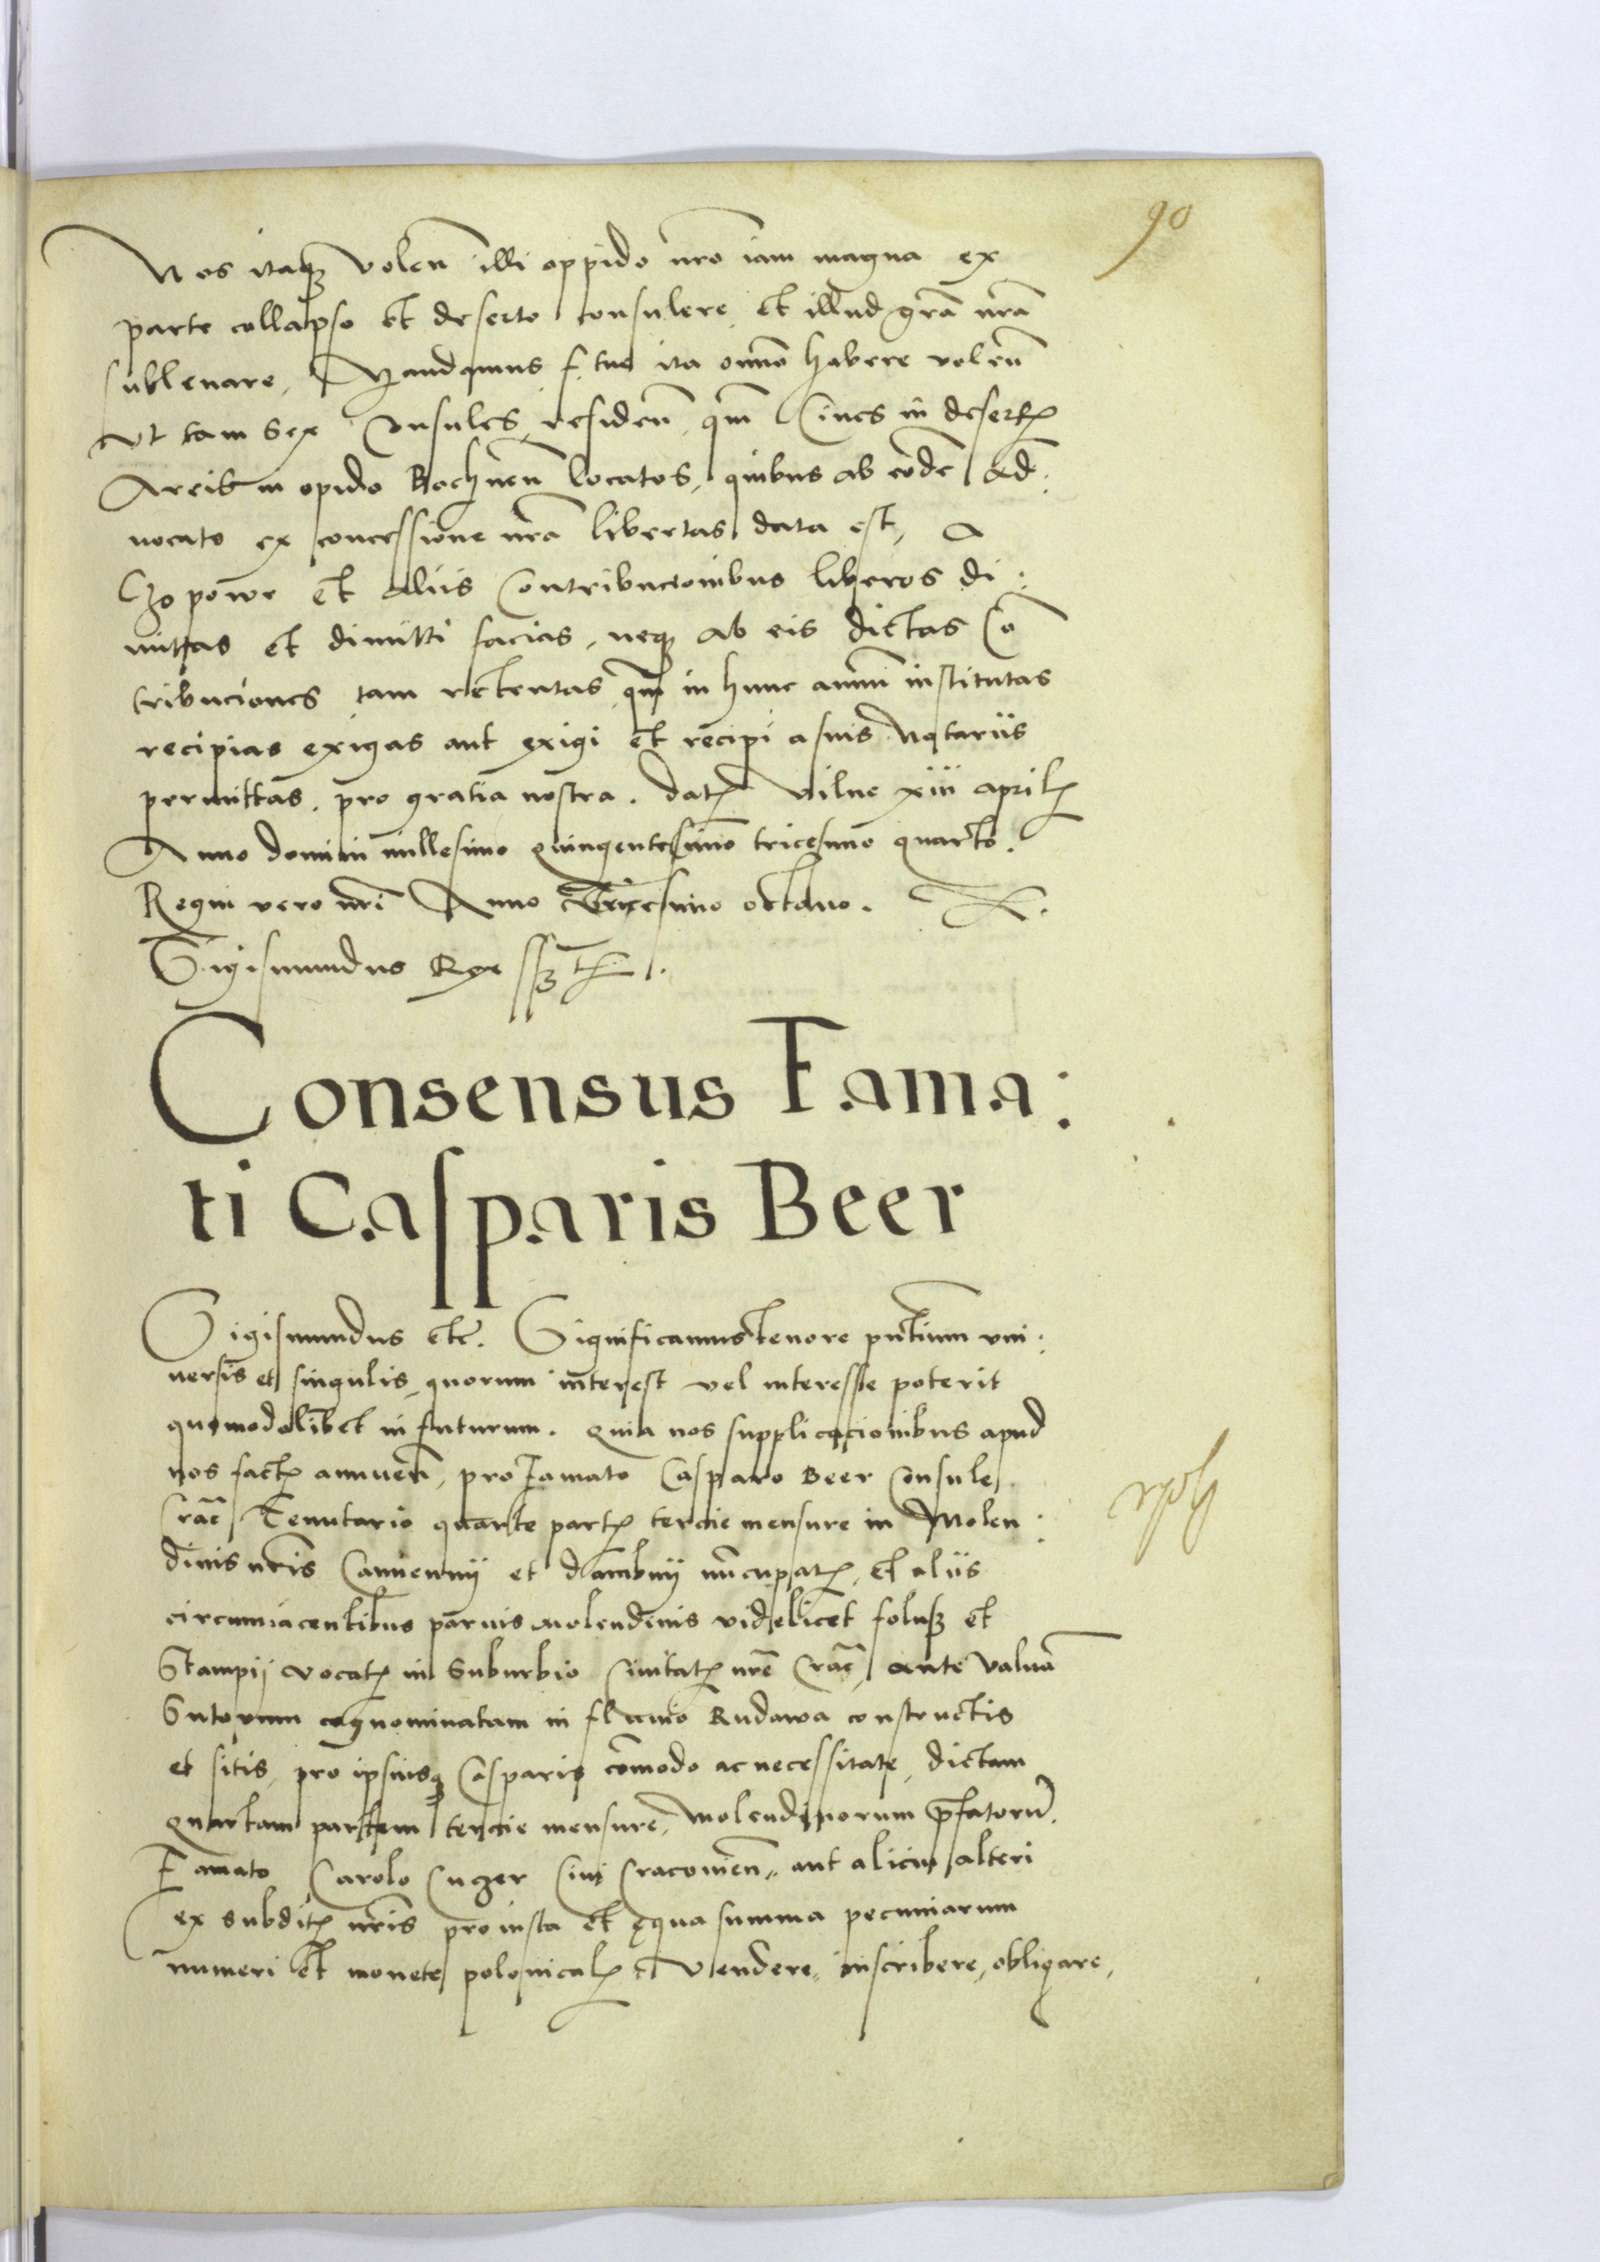 90
Nos itaq volen illi oppido nro iam magna ex
parte collapso et deserto consulere et illud gra nra
subleuare, Mandamus f. tue ita omno habere volen
Ut tam sex Consules residen qm Ciues in desert
Areis in opido Bochnen locatos, quibus ab eode Ad:
uocato ex concessione nra libertas data est, a
Czopowe et aliis Contribucionibus liberos di:
mittas et dimitti facias, neq ab eis dictas Co
tribuciones tam retentas qm in hunc annu institutas
recipias exigas aut exigi et recipi a suis Notariis
permittas. pro gratia nostra. dat Vilne xiii april
Anno domini millesimo quingentesimo tricesimo quarto.
Regni vero nri Anno Tricesimo octauo.
Sigismundus Rex
Consensus Fama:
ti Casparis Beer
Sigismundus etc. Significamus tenore pntium vni:
uersis et singulis quorum interest vel interesse poterit
quomodolibet in futurum. quia nos supplicacionibus apud
nos fact annuen, pro Famato Casparo Beer Consule
Crac Tenutario quarte part tercie mensure in Molen:
dinis nris Camienny et dambny nucupat, et aliis
circumiacentibus paruis molendinis videlicet folusz et
Stampij vocat in Suburbio Ciuitat nre Crac ante valua
Sutorum cognominatam in fluuio Rudawa constructis
et sitis, pro ipsiusq Casparis comodo ac necessitate, dictam
quartam partem tercie mensure, molendinorum pfatoru.
Famato Carolo Cuzer Ciui Cracouien, aut alicui alteri
ex subdit nris pro iusta et equa summa pecuniarum
numeri et monete polonical Vendere, inscribere, obligare,